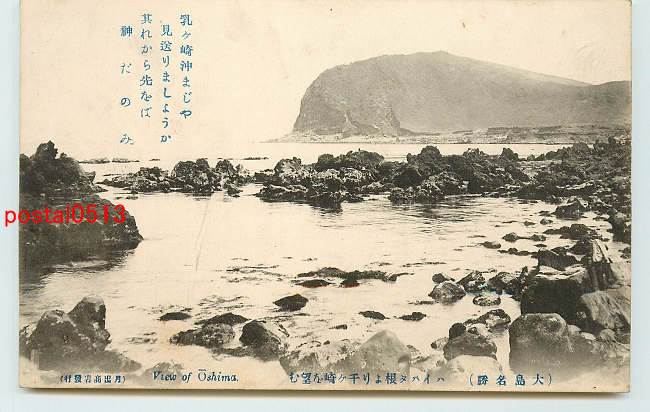 乳ヶ崎沖まじや
見送りましようか
其れから先をば
神だのみ
postal0513
(大島名勝) ハイハタ根より千ヶ崎を望む
View of Ōshima.
(月出商店發行)